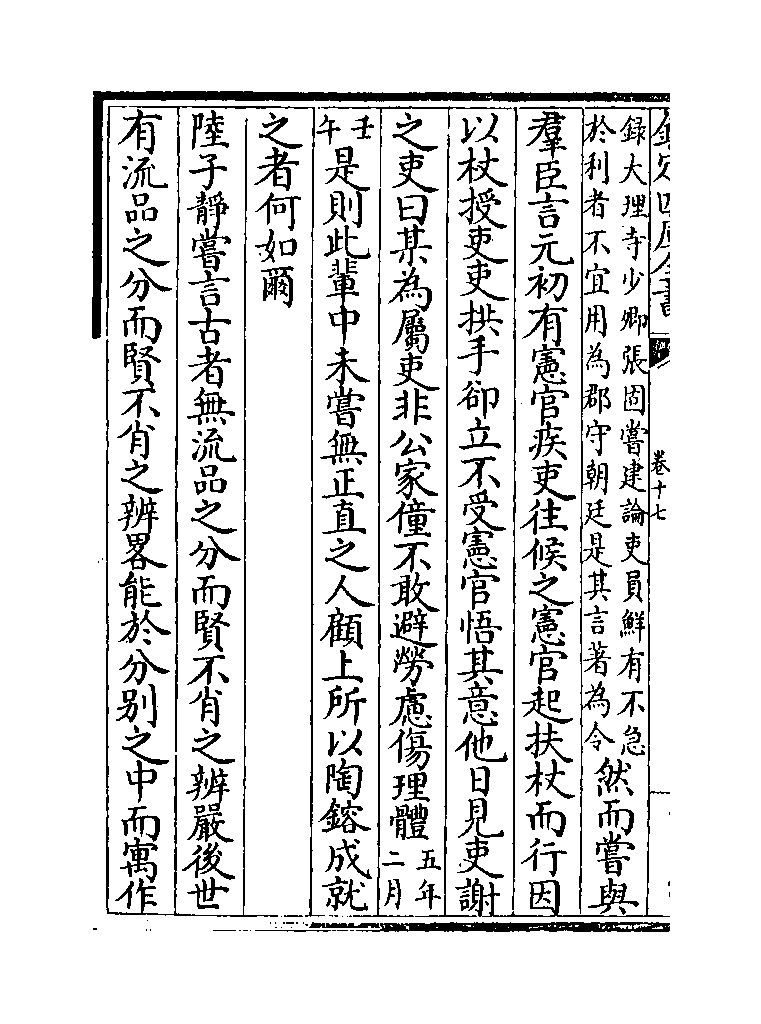 欽定四庫全書
卷十七
録大理寺少卿張固嘗建論吏員鮮有不急
於利者不宜用為郡守朝廷是其言著為令
然而嘗與
羣臣言元初有憲官疾吏往候之憲官起扶杖而行因
以杖授吏吏拱手卻立不受憲官悟其意他日見吏謝
之吏曰某為屬吏非公家僮不敢避勞慮傷理體
五年
二月
壬
午
是則此輩中未嘗無正直之人顧上所以陶鎔成就
之者何如爾
陸子靜嘗言古者無流品之分而賢不肖之辨嚴後世
有流品之分而賢不肖之辨畧能於分别之中而寓作